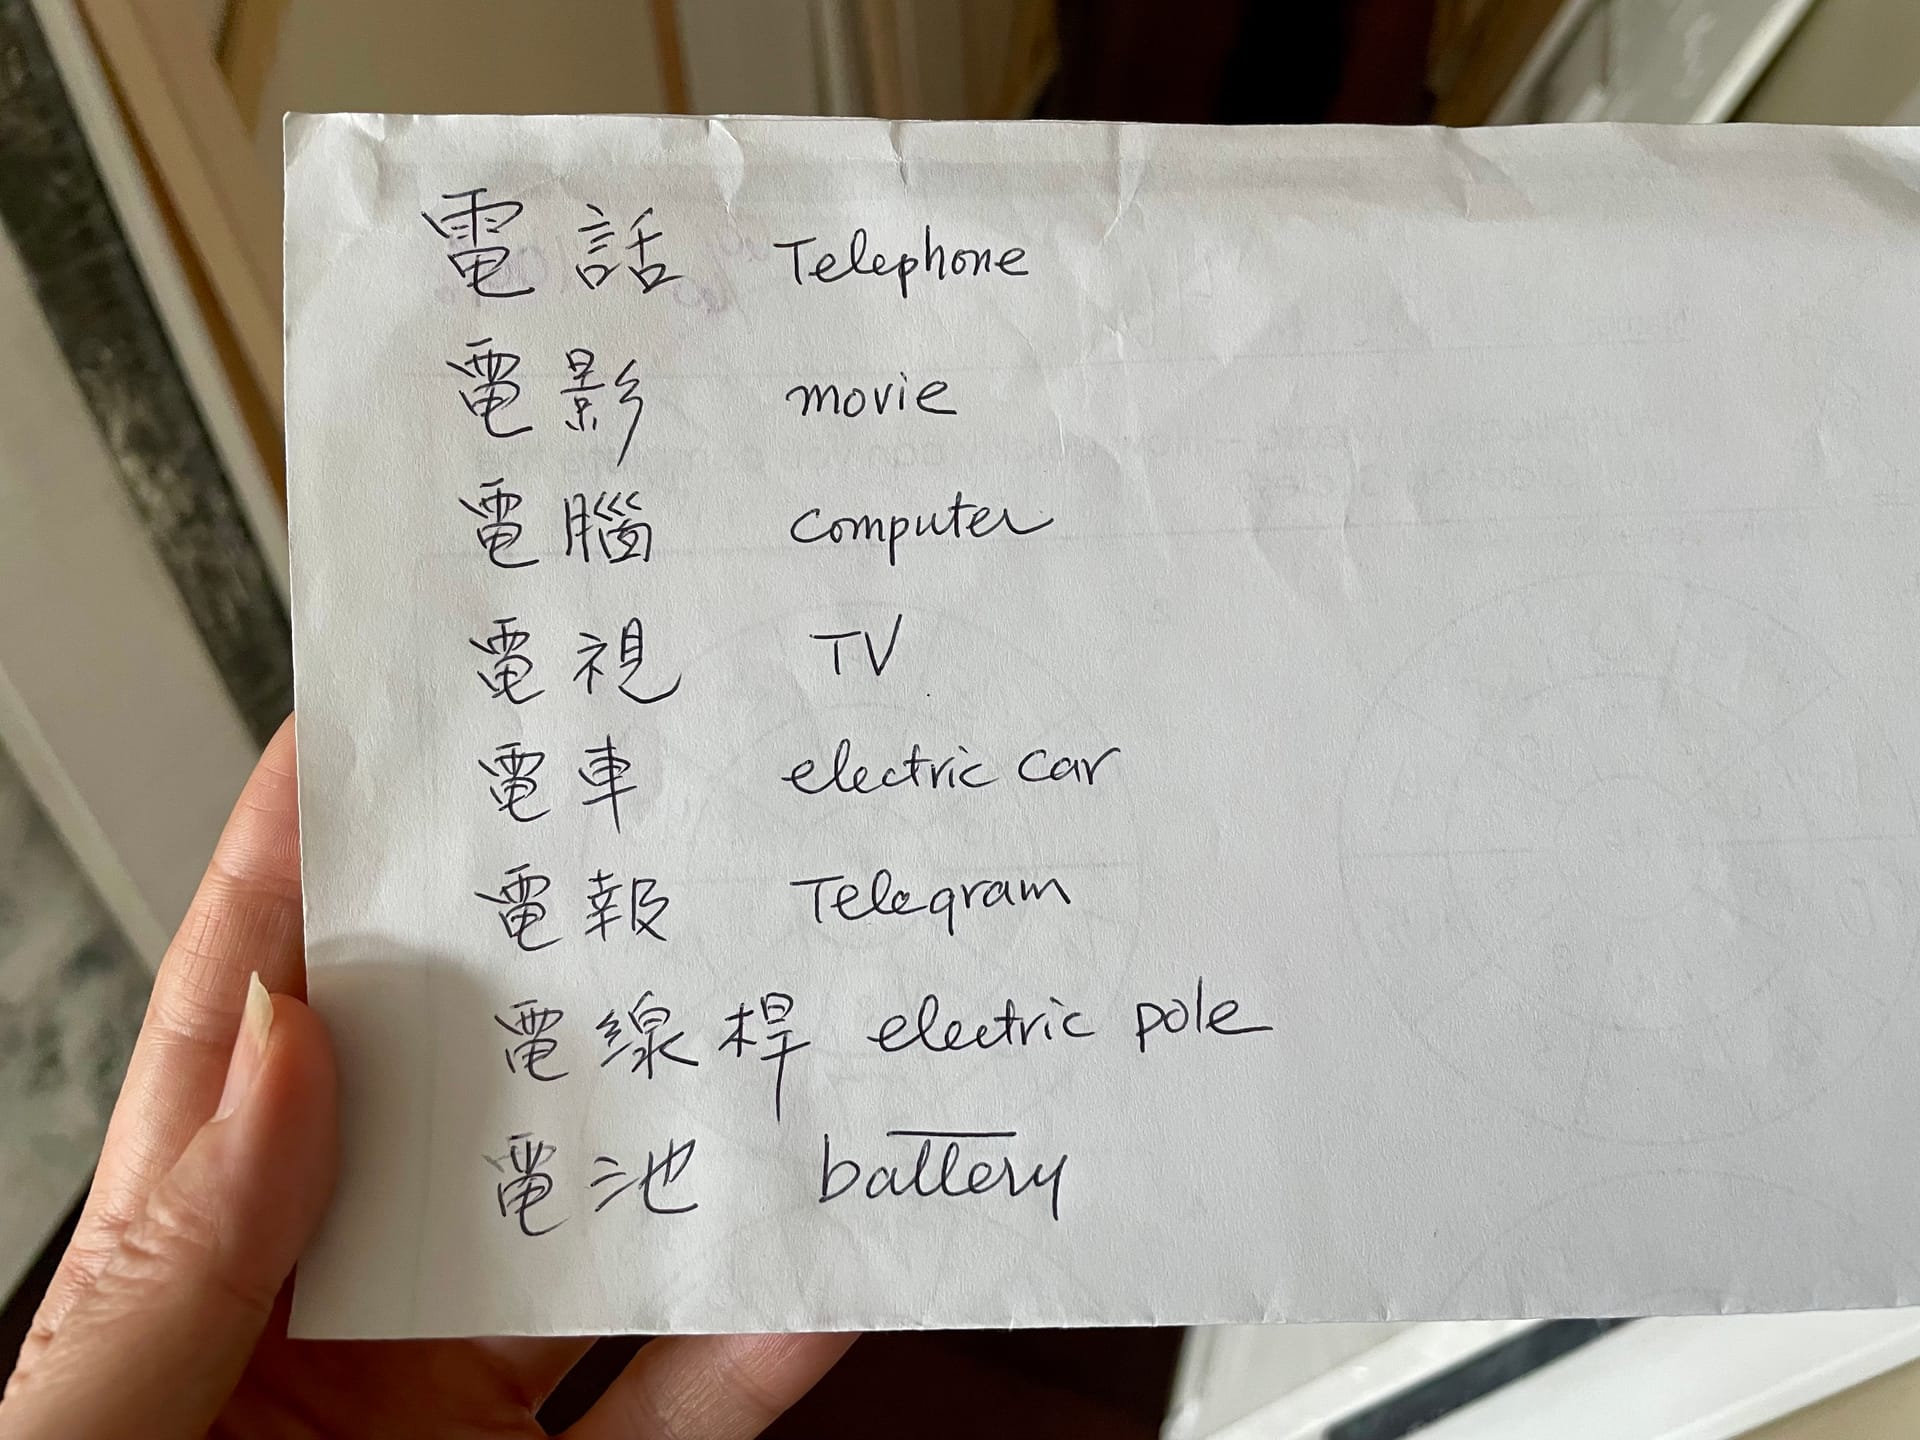 電話 Telephone
電影 movie
電腦 computer
電視 TV
電車 electric car
電報 Telegram
電線桿 electric pole
電池 battery